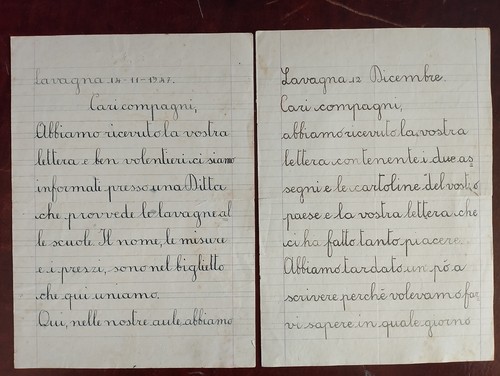 Lavagna 14-11-1947.
Cari compagni,
Abbiamo ricevuto la vostra
lettera e ben volentieri ci siamo
informati presso una Ditta
che provvede le lavagne al
le scuole. Il nome, le misure
e i prezzi, sono nel biglietto
che qui uniamo.
Qui, nelle nostre aule abbiamo
Lavagna 12 Dicembre.
Cari compagni,
abbiamo ricevuto la vostra
lettera contenente i due as
segni e le cartoline del vostro
paese e la vostra lettera che
ci ha fatto tanto piacere.
Abbiamo tardato un pò a
scrivere perchè volevamo far
vi sapere in quale giorno